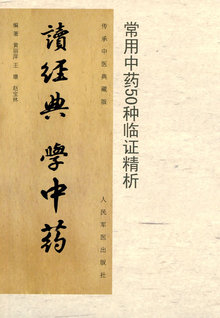 常用中药50种临证精析
传承中医典藏版
讀經典 學中药
编著 黄丽萍 王珊 赵宝林
人民军医出版社